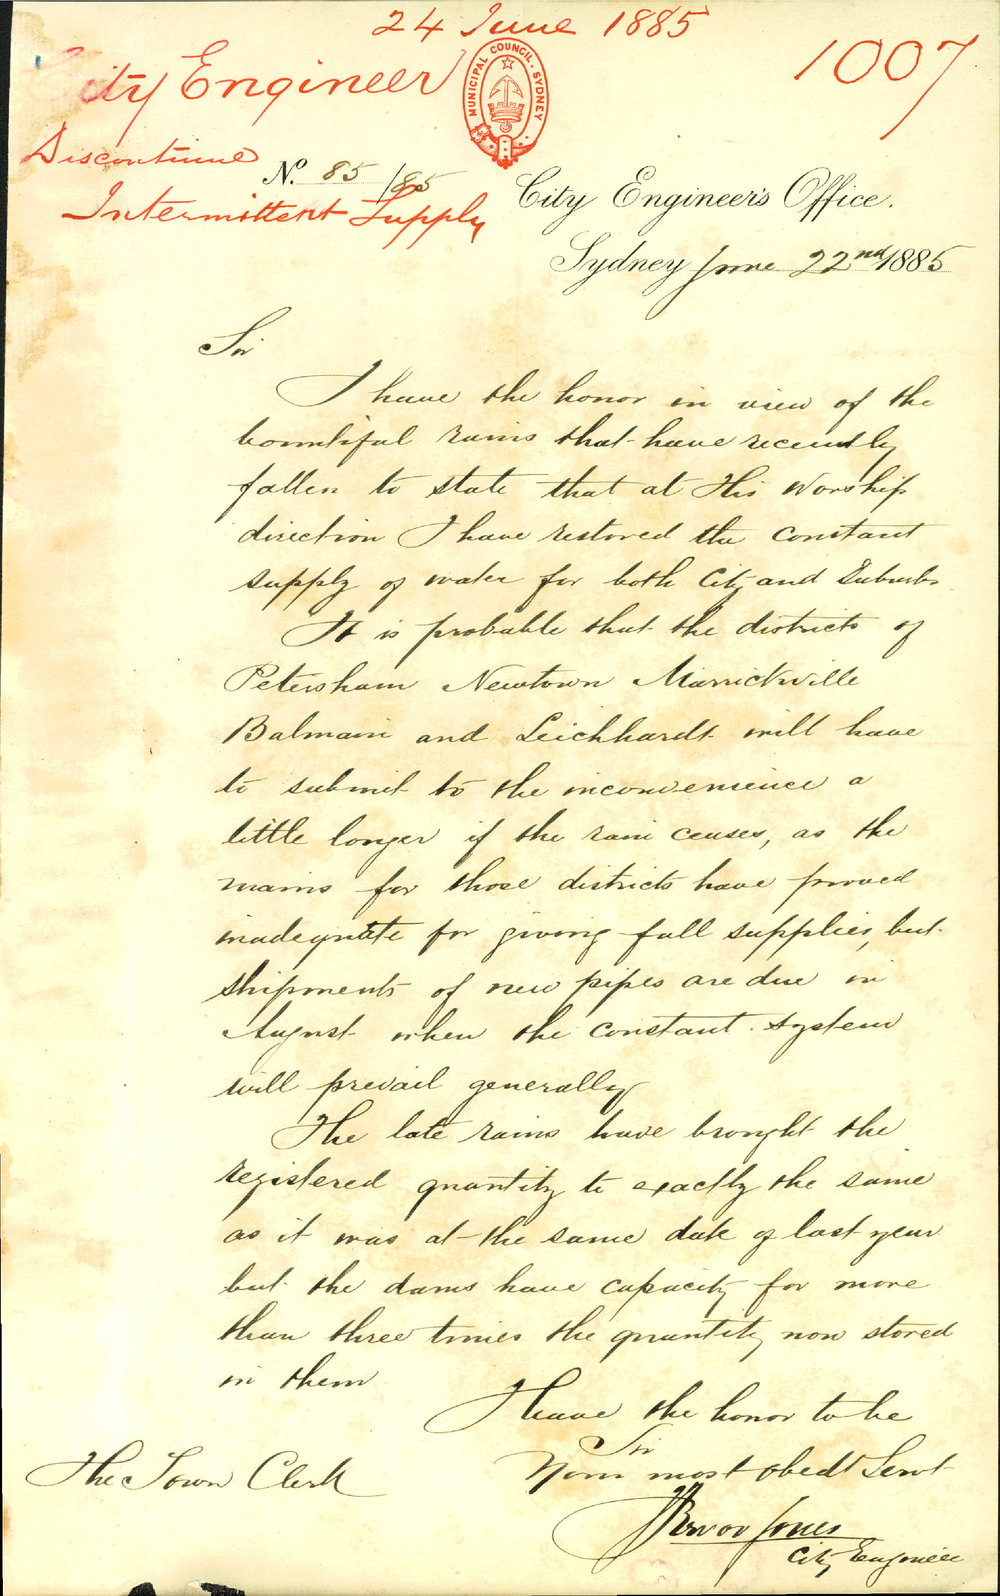 24 June 1885
City Engineer
1007
MUNICIPAL COUNCIL. SYDNEY
Discontinue
Intermittent Supply
No. 85/85
City Engineer's Office.
Sydney June 22nd 1885
Sir
I have the honor in view of the
bountiful rains that have recently
fallen to state that at His Worship
direction I have restored the constant
supply of water for both City and Suburbs
It is probable that the districts of
Petersham Newtown Marrickville
Balmain and Leichhardt will have
to submit to the inconvenience a
little longer if the rain ceases, as the
mains for those districts have proved
inadequate for giving full supplies, but
shipments of new pipes are due in
August when the constant system
will prevail generally
The late rains have brought the
registered quantity to exactly the same
as it was at the same date of last year
but the dams have capacity for more
than three times the quantity now stored
in them
I have the honor to be
Sir
Your most obedt Servt
Trevor Jones
City Engineer
The Town Clerk